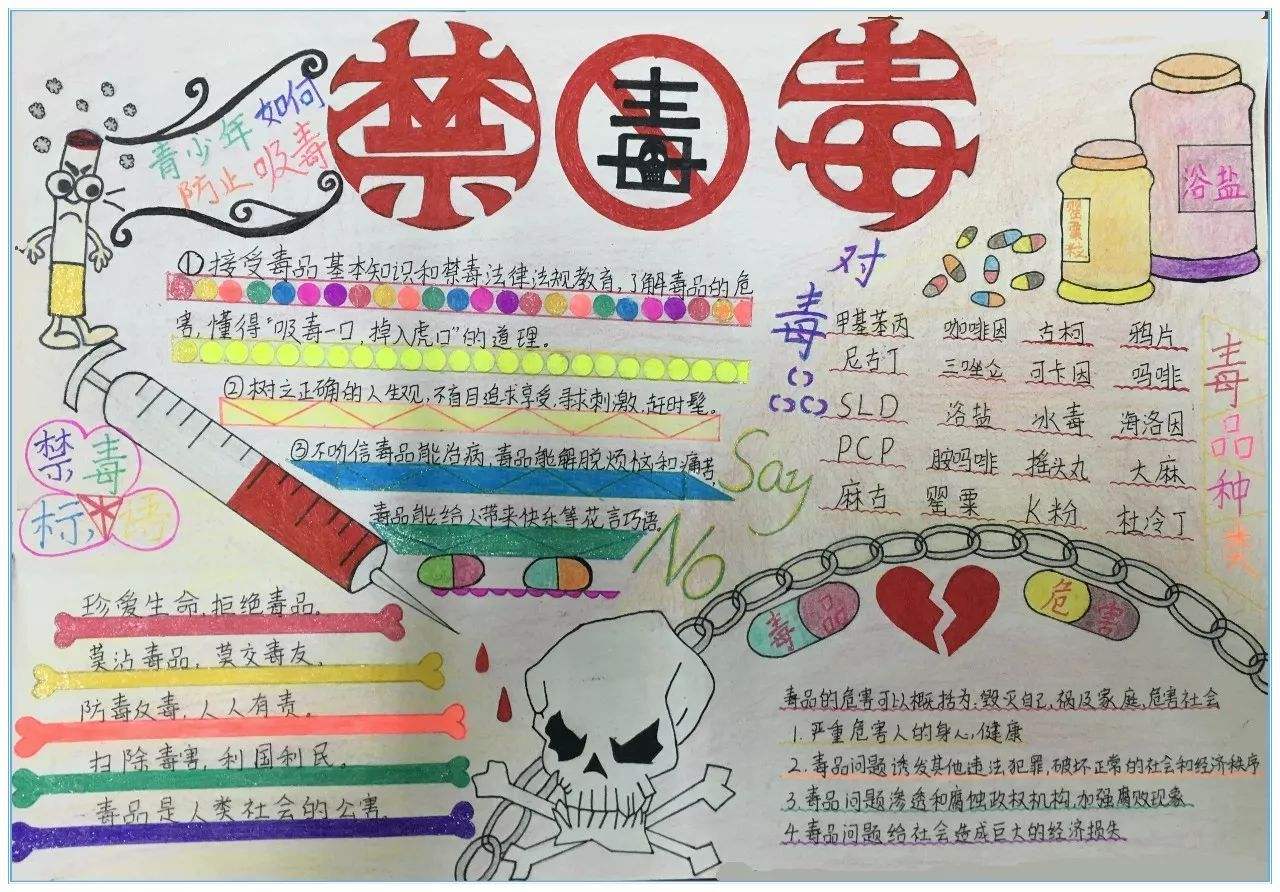 禁毒毒
青少年如何
防止吸毒
①接受毒品基本知识和禁毒法律法规教育,了解毒品的危
害,懂得“吸毒一口,掉入虎口”的道理。
②树立正确的人生观,不盲目追求享受,寻求刺激,赶时髦。
③不听信毒品能治病,毒品能解脱烦恼和痛苦,
毒品能给人带来快乐等花言巧语。
禁毒
标语
珍爱生命,拒绝毒品。
莫沾毒品,莫交毒友。
防毒反毒,人人有责。
扫除毒害,利国利民。
毒品是人类社会的公害。
对毒品
Say
No
浴盐
罂粟粒
毒品种类
甲基苯丙 咖啡因 古柯 鸦片
尼古丁 三唑仑 可卡因 吗啡
SLD 浴盐 冰毒 海洛因
PCP 胺吗啡 摇头丸 大麻
麻古 罂粟 K粉 杜冷丁
毒品 危害
毒品的危害可以概括为:毁灭自己,祸及家庭,危害社会
1.严重危害人的身心健康
2.毒品问题诱发其他违法犯罪,破坏正常的社会和经济秩序
3.毒品问题渗透和腐蚀政权机构,加强腐败现象
4.毒品问题给社会造成巨大的经济损失